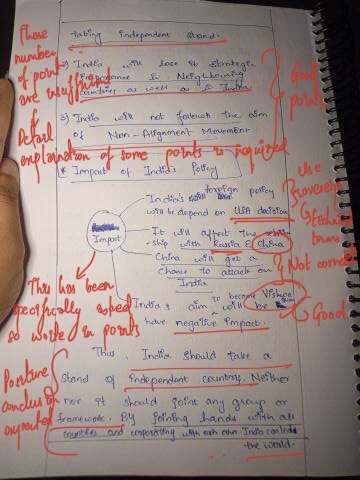 taking independent stand.
2) India will lose it strategic
importance in Neighbouring
countries as well as in India
3) India will not follow the aim
of Non-Alignment Movement
* Impact of India's Policy
Impact
India's foreign policy
will be depend on USA decision
It will affect the
-ship with Russia & China
China will get a
chance to attack on
India
India's aim to become Vishwa
guru will
have negative impact.
Thus, India should take a
stand of independent country. Neither
nor it should joint any group or
framework. By joining hands with all
countries and cooperating with each other. India can lead
the world.
These
number
of point
are insufficient
Detail
explanation of some points is required
This has been
specifically asked
so write in points
Positive
conclusion
expected
Good
points
Use
sovereign
& technical
terms
Not correct
Good